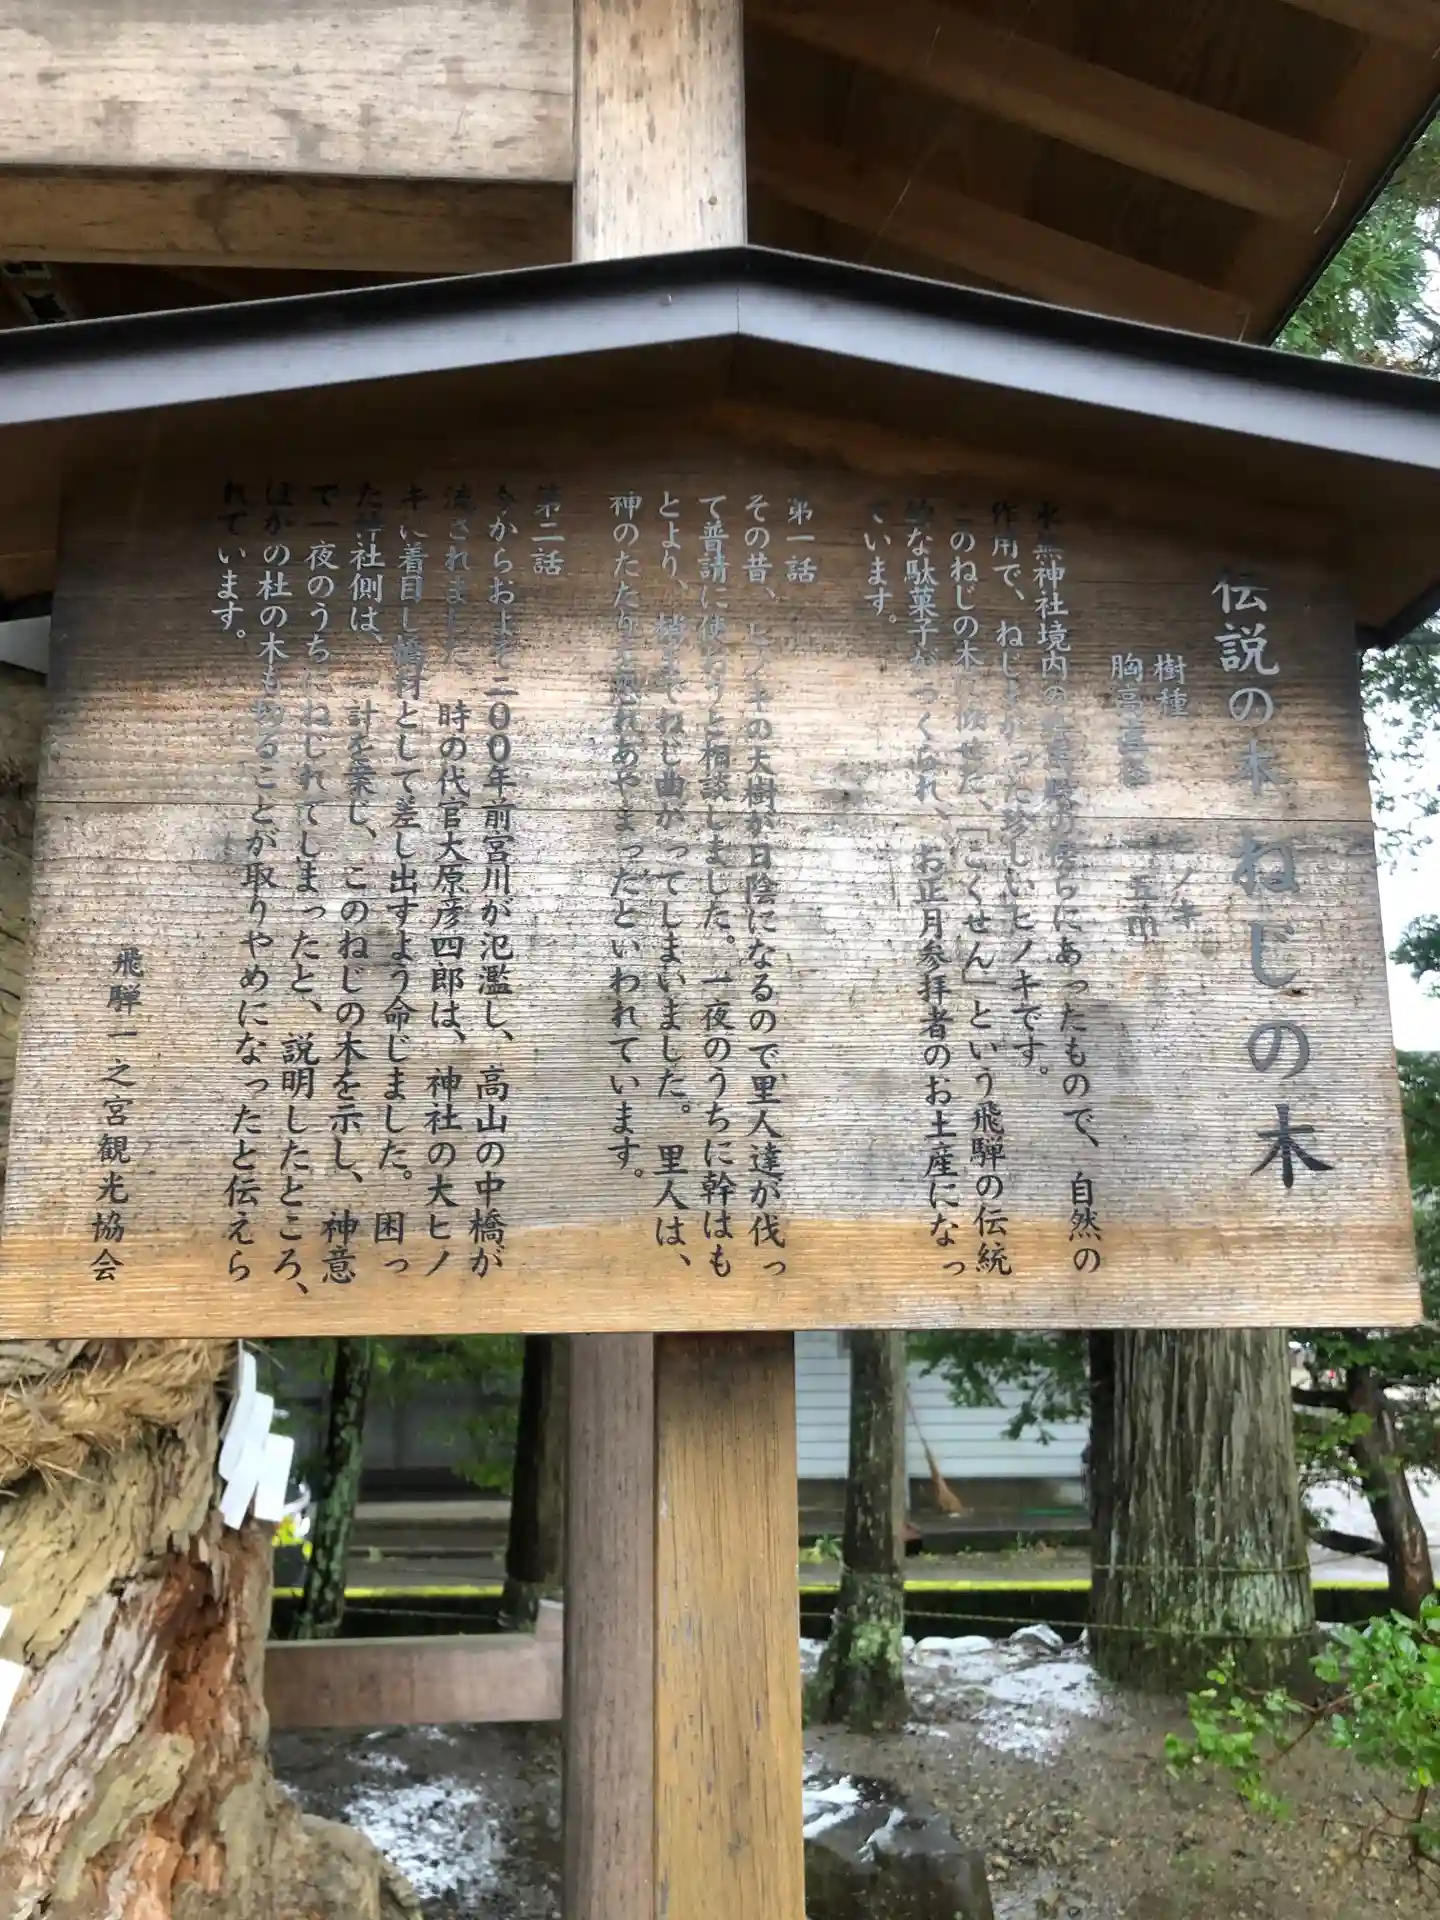 伝説の木 ねじの木
樹種 ヒノキ
胸高直径 一・五m
水無神社境内の の傍らにあったもので、自然の
作用で、ねじ曲がった珍しいヒノキです。
このねじの木に似せた、「こくせん」という飛騨の伝統
的な駄菓子がつくられ、お正月参拝者のお土産になっ
ています。
第一話
その昔、ヒノキの大樹が日陰になるので里人達が伐っ
て普請に使おうと相談しました。一夜のうちに幹はも
とより、梢までねじ曲がってしまいました。里人は、
神のたたりと恐れあやまったといわれています。
第二話
今からおよそ二〇〇年前宮川が氾濫し、高山の中橋が
流されました。時の代官大原彦四郎は、神社の大ヒノ
キに着目し橋材として差し出すよう命じました。困っ
た神社側は、一計を案じ、このねじの木を示し、神意
で一夜のうちにねじれてしまったと、説明したところ、
ほかの杜の木も切ることが取りやめになったと伝えら
れています。
飛騨一之宮観光協会